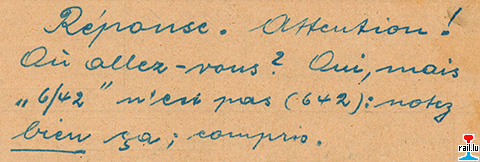 Réponse. Attention!
Où allez-vous? Oui, mais
„6/42” n'est pas (642): notez
bien ça; compris.
rail.lu